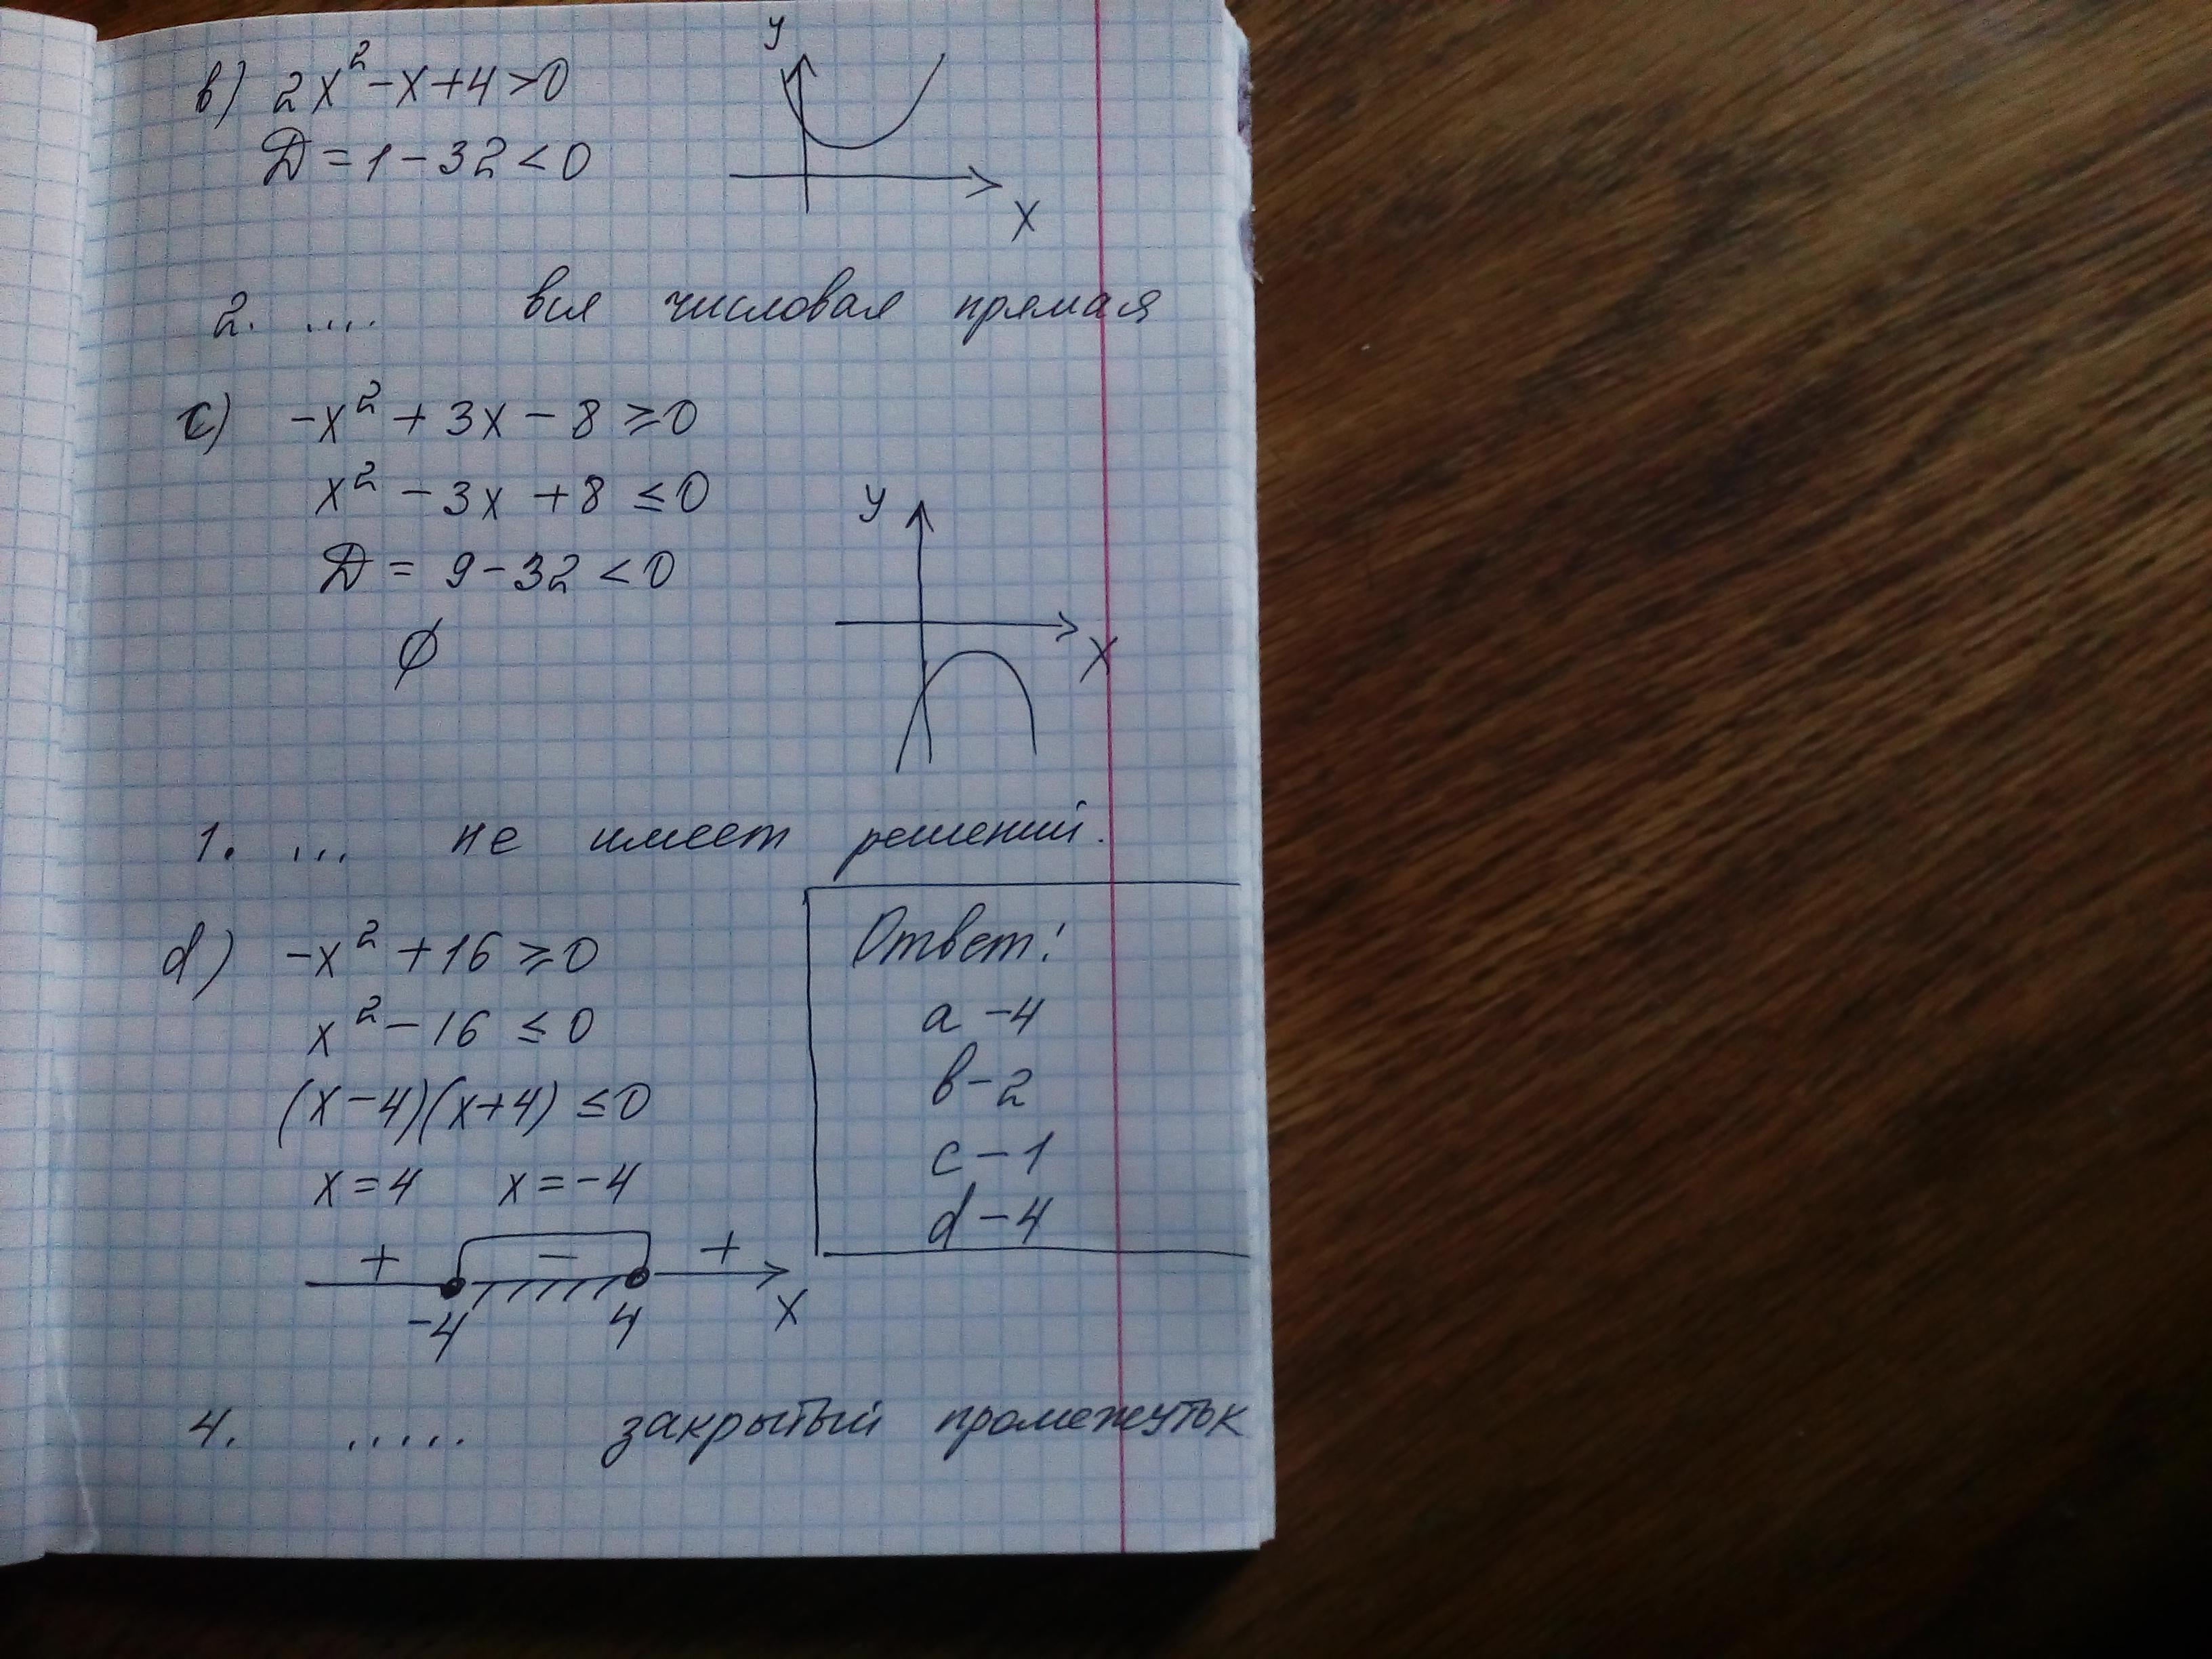 в) 2x² - x + 4 > 0
Д = 1 - 32 < 0
y
x
2. .... вся числовая прямая
c) -x² + 3x - 8 ≥ 0
x² - 3x + 8 ≤ 0
Д = 9 - 32 < 0
∅
y
x
1. ... не имеет решений.
d) -x² + 16 ≥ 0
x² - 16 ≤ 0
(x-4)(x+4) ≤ 0
x = 4 x = -4
+ - +
-4 4 x
Ответ:
a - 4
в - 2
c - 1
d - 4
4. ..... закрытый промежуток